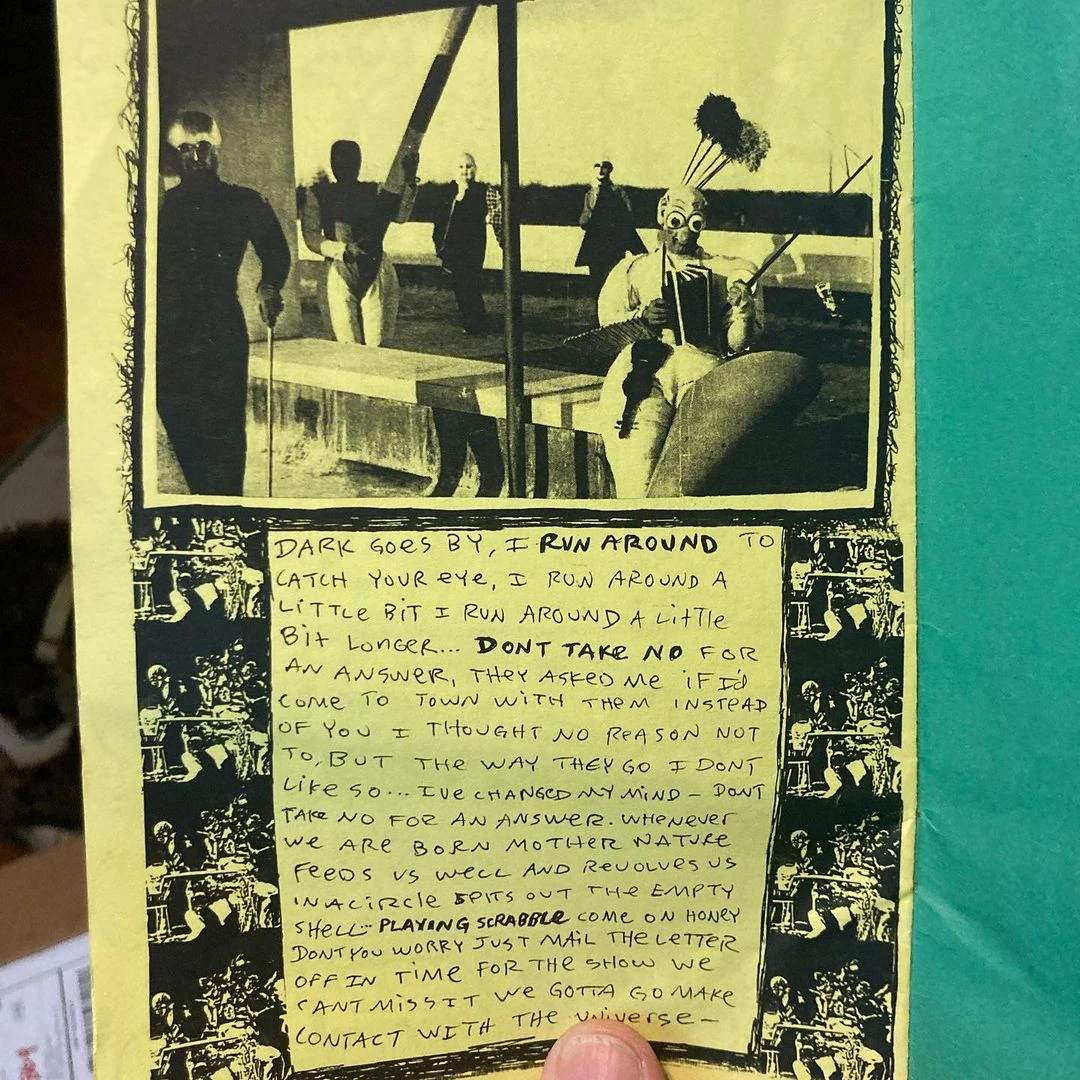 DARK GOES BY, I RUN AROUND TO
CATCH YOUR EYE, I RUN AROUND A
LITTLE BIT I RUN AROUND A LITTLE
BIT LONGER... DONT TAKE NO FOR
AN ANSWER, THEY ASKED ME IF I'D
COME TO TOWN WITH THEM INSTEAD
OF YOU I THOUGHT NO REASON NOT
TO, BUT THE WAY THEY GO I DONT
LIKE SO... IVE CHANGED MY MIND - DONT
TAKE NO FOR AN ANSWER. WHENEVER
WE ARE BORN MOTHER NATURE
FEEDS US WELL AND REVOLVES US
IN A CIRCLE SPITS OUT THE EMPTY
SHELL - PLAYING SCRABBLE COME ON HONEY
DONT YOU WORRY JUST MAIL THE LETTER
OFF IN TIME FOR THE SHOW WE
CANT MISS IT WE GOTTA GO MAKE
CONTACT WITH THE UNIVERSE -